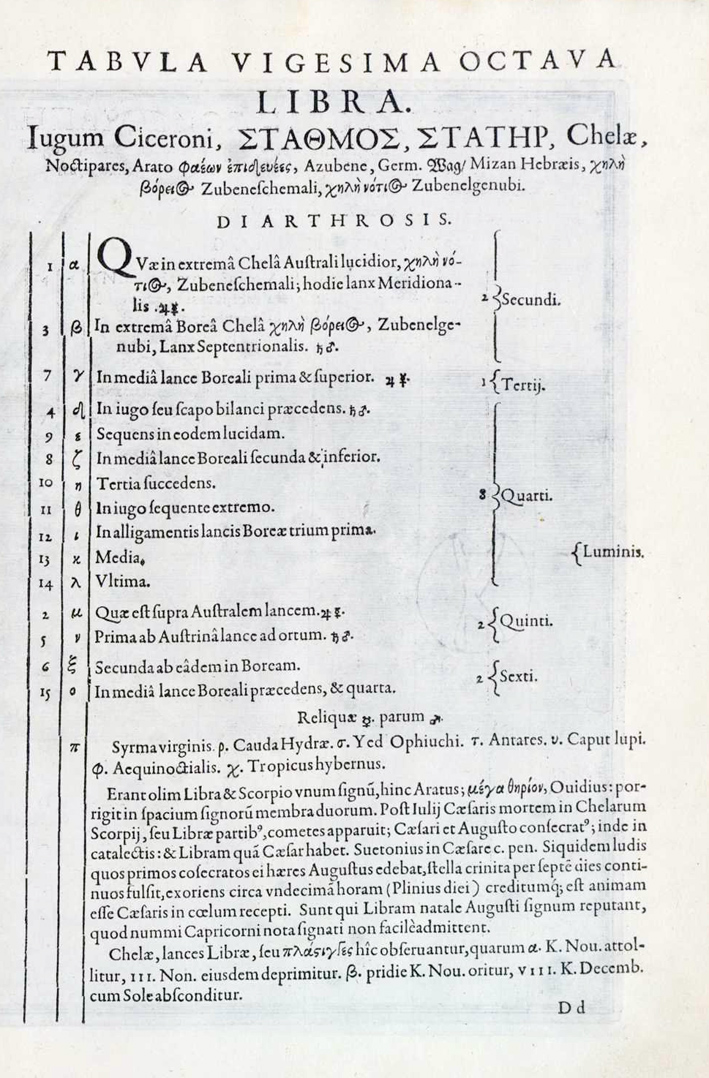 TABVLA VIGESIMA OCTAVA
LIBRA.
Iugum Ciceroni, ΣΤΑΘΜΟΣ, ΣΤΑΤΗΡ, Chelæ,
Noctipares, Arato φαέων ἐπιδευέες, Azubene, Germ. Wag/ Mizan Hebræis, χηλὴ
βόρειος Zubeneſchemali, χηλὴ νότιος Zubenelgenubi.
DIARTHROSIS.
1 α QVæ in extremâ Chelâ Auſtrali lucidior, χηλὴ νό-
τιος, Zubeneſchemali; hodie lanx Meridiona-
lis .♃☿. 2 {Secundi.
3 β In extremâ Boreâ Chelâ χηλὴ βόρειος, Zubenelge-
nubi, Lanx Septentrionalis. ♄♂.
7 γ In mediâ lance Boreali prima & ſuperior. ♃☿. 1 {Tertij.
4 δ In iugo ſeu ſcapo bilanci præcedens. ♄♂.
9 ε Sequens in eodem lucidam.
8 ζ In mediâ lance Boreali ſecunda & inferior.
10 η Tertia ſuccedens.
11 θ In iugo ſequente extremo. 8 {Quarti.
12 ι In alligamentis lancis Boreæ trium prima.
13 κ Media. {Luminis.
14 λ Vltima.
2 μ Quæ eſt ſupra Auſtralem lancem. ♃☿. 2 {Quinti.
5 ν Prima ab Auſtrinâ lance ad ortum. ♄♂.
6 ξ Secunda ab eâdem in Boream. 2 {Sexti.
15 ο In mediâ lance Boreali præcedens, & quarta.
Reliquæ ☿. parum ♂.
π Syrma virginis. ρ. Cauda Hydræ. σ. Yed Ophiuchi. τ. Antares. υ. Caput lupi.
φ. Aequinoctialis. χ. Tropicus hybernus.
Erant olim Libra & Scorpio vnum ſignū, hinc Aratus; μέγα θηρίον, Ouidius: por-
rigit in ſpacium ſignorū membra duorum. Poſt Iulij Cæſaris mortem in Chelarum
Scorpij, ſeu Libræ partibꝰ, cometes apparuit; Cæſari et Auguſto conſecratꝰ; inde in
catalectis: & Libram quā Cæſar habet. Suetonius in Cæſare c. pen. Siquidem ludis
quos primos coſecratos ei hæres Auguſtus edebat, ſtella crinita per ſeptē dies conti-
nuos fulſit, exoriens circa vndecimā horam (Plinius diei) creditumq́; eſt animam
eſſe Cæſaris in cœlum recepti. Sunt qui Libram natale Auguſti ſignum reputant,
quod nummi Capricorni nota ſignati non facilè admittent.
Chelæ, lances Libræ, ſeu πλάςιγγες hîc obſeruantur, quarum α. K. Nou. attol-
litur, III. Non. eiusdem deprimitur. β. pridie K. Nou. oritur, VIII. K. Decemb.
cum Sole abſconditur.
D d